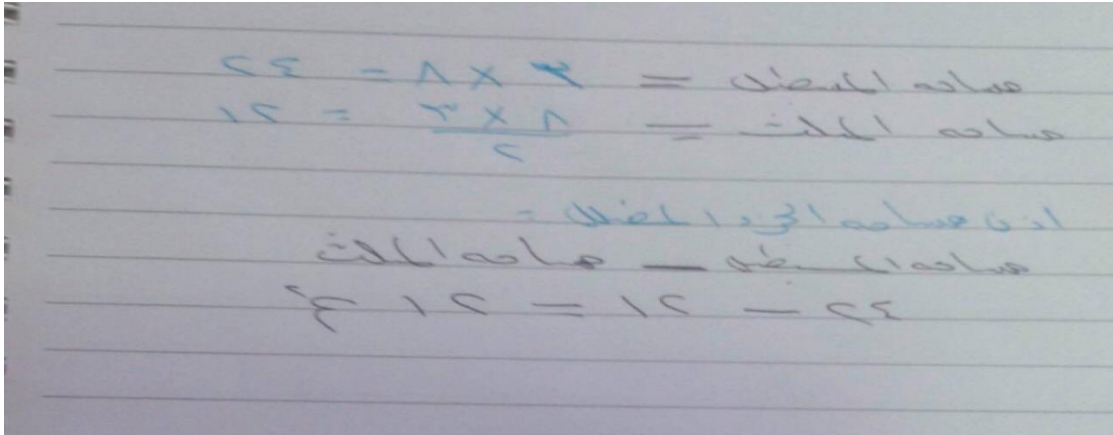 مساحه المستطيل = ٣ × ٨ = ٢٤
مساحه المثلث = ٨ × ٣ / ٢ = ١٢
اذن مساحه الجزء المظلل =
مساحه المستطيل – مساحه المثلث
٢٤ – ١٢ = ١٢ م٢